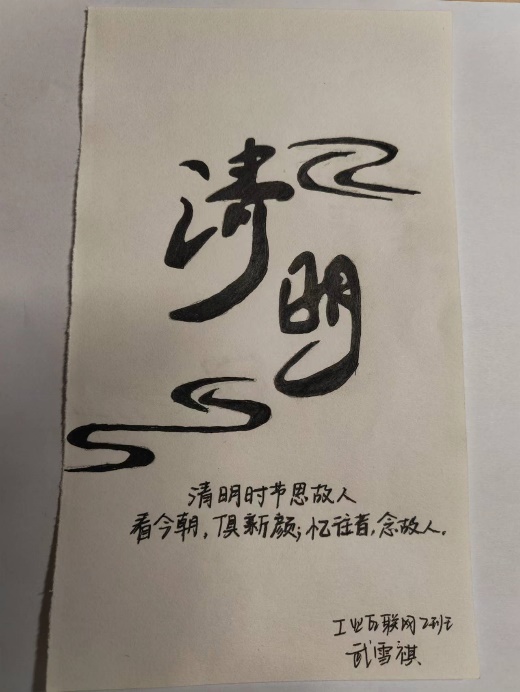 清明
清明时节思故人
看今朝，俱新颜；忆往昔，念故人．
工业互联网2班
武雪祺